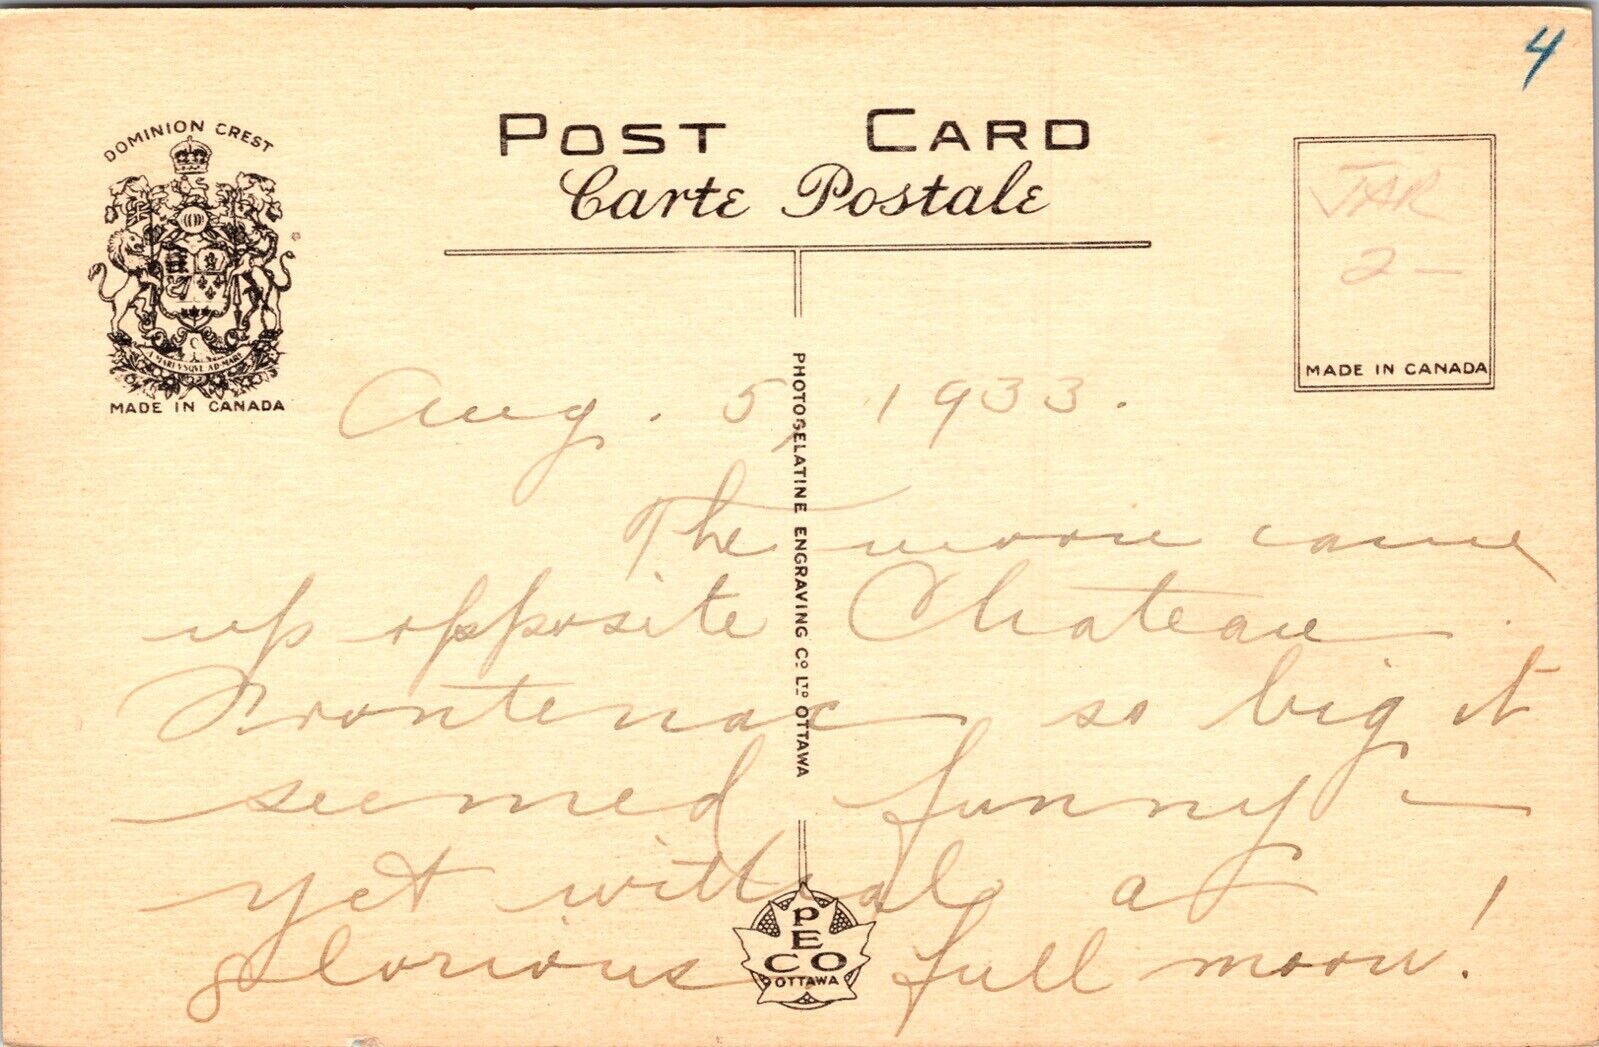 4
DOMINION CREST
A MARI VSQVE AD MARE
MADE IN CANADA
POST CARD
Carte Postale
JAR
2 —
MADE IN CANADA
PHOTOGELATINE ENGRAVING CO. LTD. OTTAWA
Aug. 5, 1933.
The moon came
up opposite Chateau
Frontenac so big it
seemed funny –
yet withal a
glorious full moon!
PECO
OTTAWA